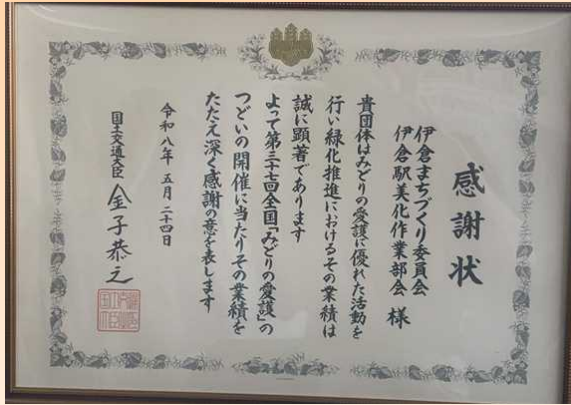 感謝状
伊倉まちづくり委員会
伊倉駅美化作業部会 様
貴団体はみどりの愛護に優れた活動を
行い緑化推進におけるその業績は
誠に顕著であります
よって第三十七回全国「みどりの愛護」の
つどいの開催に当たりその業績を
たたえ深く感謝の意を表します
令和八年 五月二十四日
国土交通大臣 金子恭之